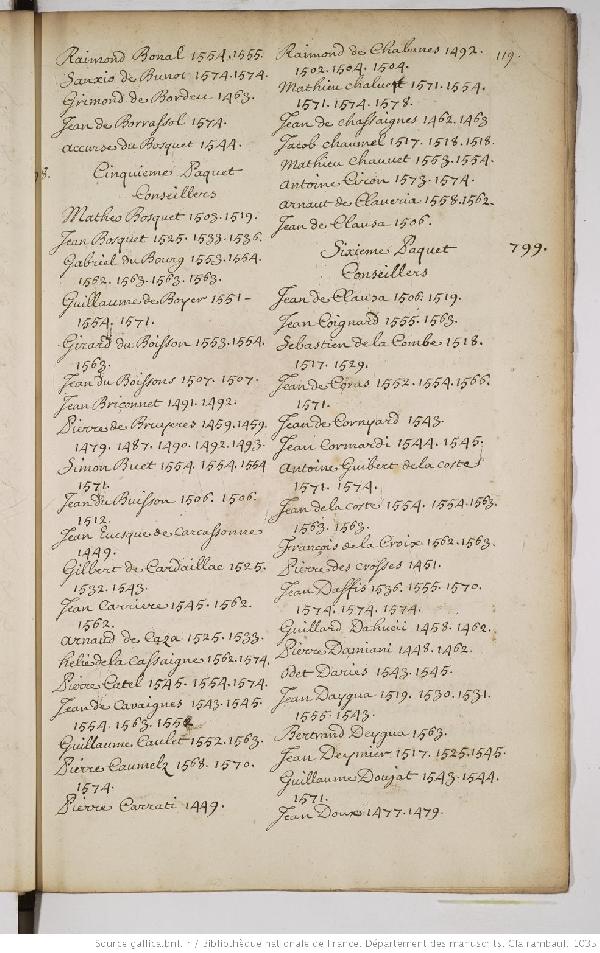 119.
Raimond Bonal 1554.1555.
Sanxio de Bunot 1574.1574.
Grimond de Bordeu 1463.
Jean de Borrassol 1574.
accurse du Bosquet 1544.
Cinquieme Paquet
Conseillers
Matheo Bosquet 1503.1519.
Jean Bosquet 1525.1533.1536.
Gabriel du Bourg 1553.1554.
1562.1563.1563.1563.
Guillaume de Boyer 1551-
1554.1571.
Girard du Boisson 1553.1554.
1563.
Jean du Boissons 1507.1507.
Jean Briçonnet 1491.1492.
Pierre de Bruyeres 1459.1459.
1479.1487.1490.1492.1493.
Simon Buet 1554.1554.1554
1571.
Jean du Buisson 1506.1506.
1512.
Jean Euesque de Carcassonne
1449.
Gilbert de Cardaillac 1525.
1532.1543.
Jean Carriere 1545.1562.
1562.
arnaud de Caza 1525.1533.
helie de la Cassaigne 1562.1574.
Pierre Catel 1545.1554.1574.
Jean de Cavaignes 1543.1545.
1554.1563.1552
Guillaume Caulet 1552.1563.
Pierre Caumelz 1568.1570.
1574.
Pierre Carrati 1449.
Raimond de Chabanes 1492.
1502.1504.1504.
Mathieu chaluet 1571.1554.
1571.1574.1578.
Jean de chassaignes 1462.1463
Jacob chaumel 1517.1518.1518.
Mathieu chauuet 1553.1554.
antoine Ciron 1573.1574.
arnaut de Claveria 1558.1562.
Jean de Clausa 1506.
Sixieme Paquet 799.
Conseillers
Jean de Clausa 1506.1519.
Jean Coignard 1555.1563.
Sebastien de la Combe 1518.
1517.1529.
Jean de Coras 1552.1554.1566.
1571.
Jean de Cornyard 1543.
Jean Cormardi 1544.1545.
antoine Guibert de la coste
1571.1574.
Jean de la coste 1554.1554.1563.
1563.1563.
François de la Croix 1562.1563.
Pierre des crosses 1451.
Jean Daffis 1536.1555.1570.
1574.1574.1574.
Guillard 1458.1462.
Pierre Damiani 1448.1462.
odet Daries 1543.1545.
Jean Daygua 1519.1530.1531.
1555.1543.
Bertrand Deygua 1563.
Jean Deymier 1517.1525.1545.
Guillaume Doujat 1543.1544.
1571.
Jean Doux 1477.1479.
Source gallica.bnf.fr / Bibliothèque nationale de France. Département des manuscrits. Clairambault 1035